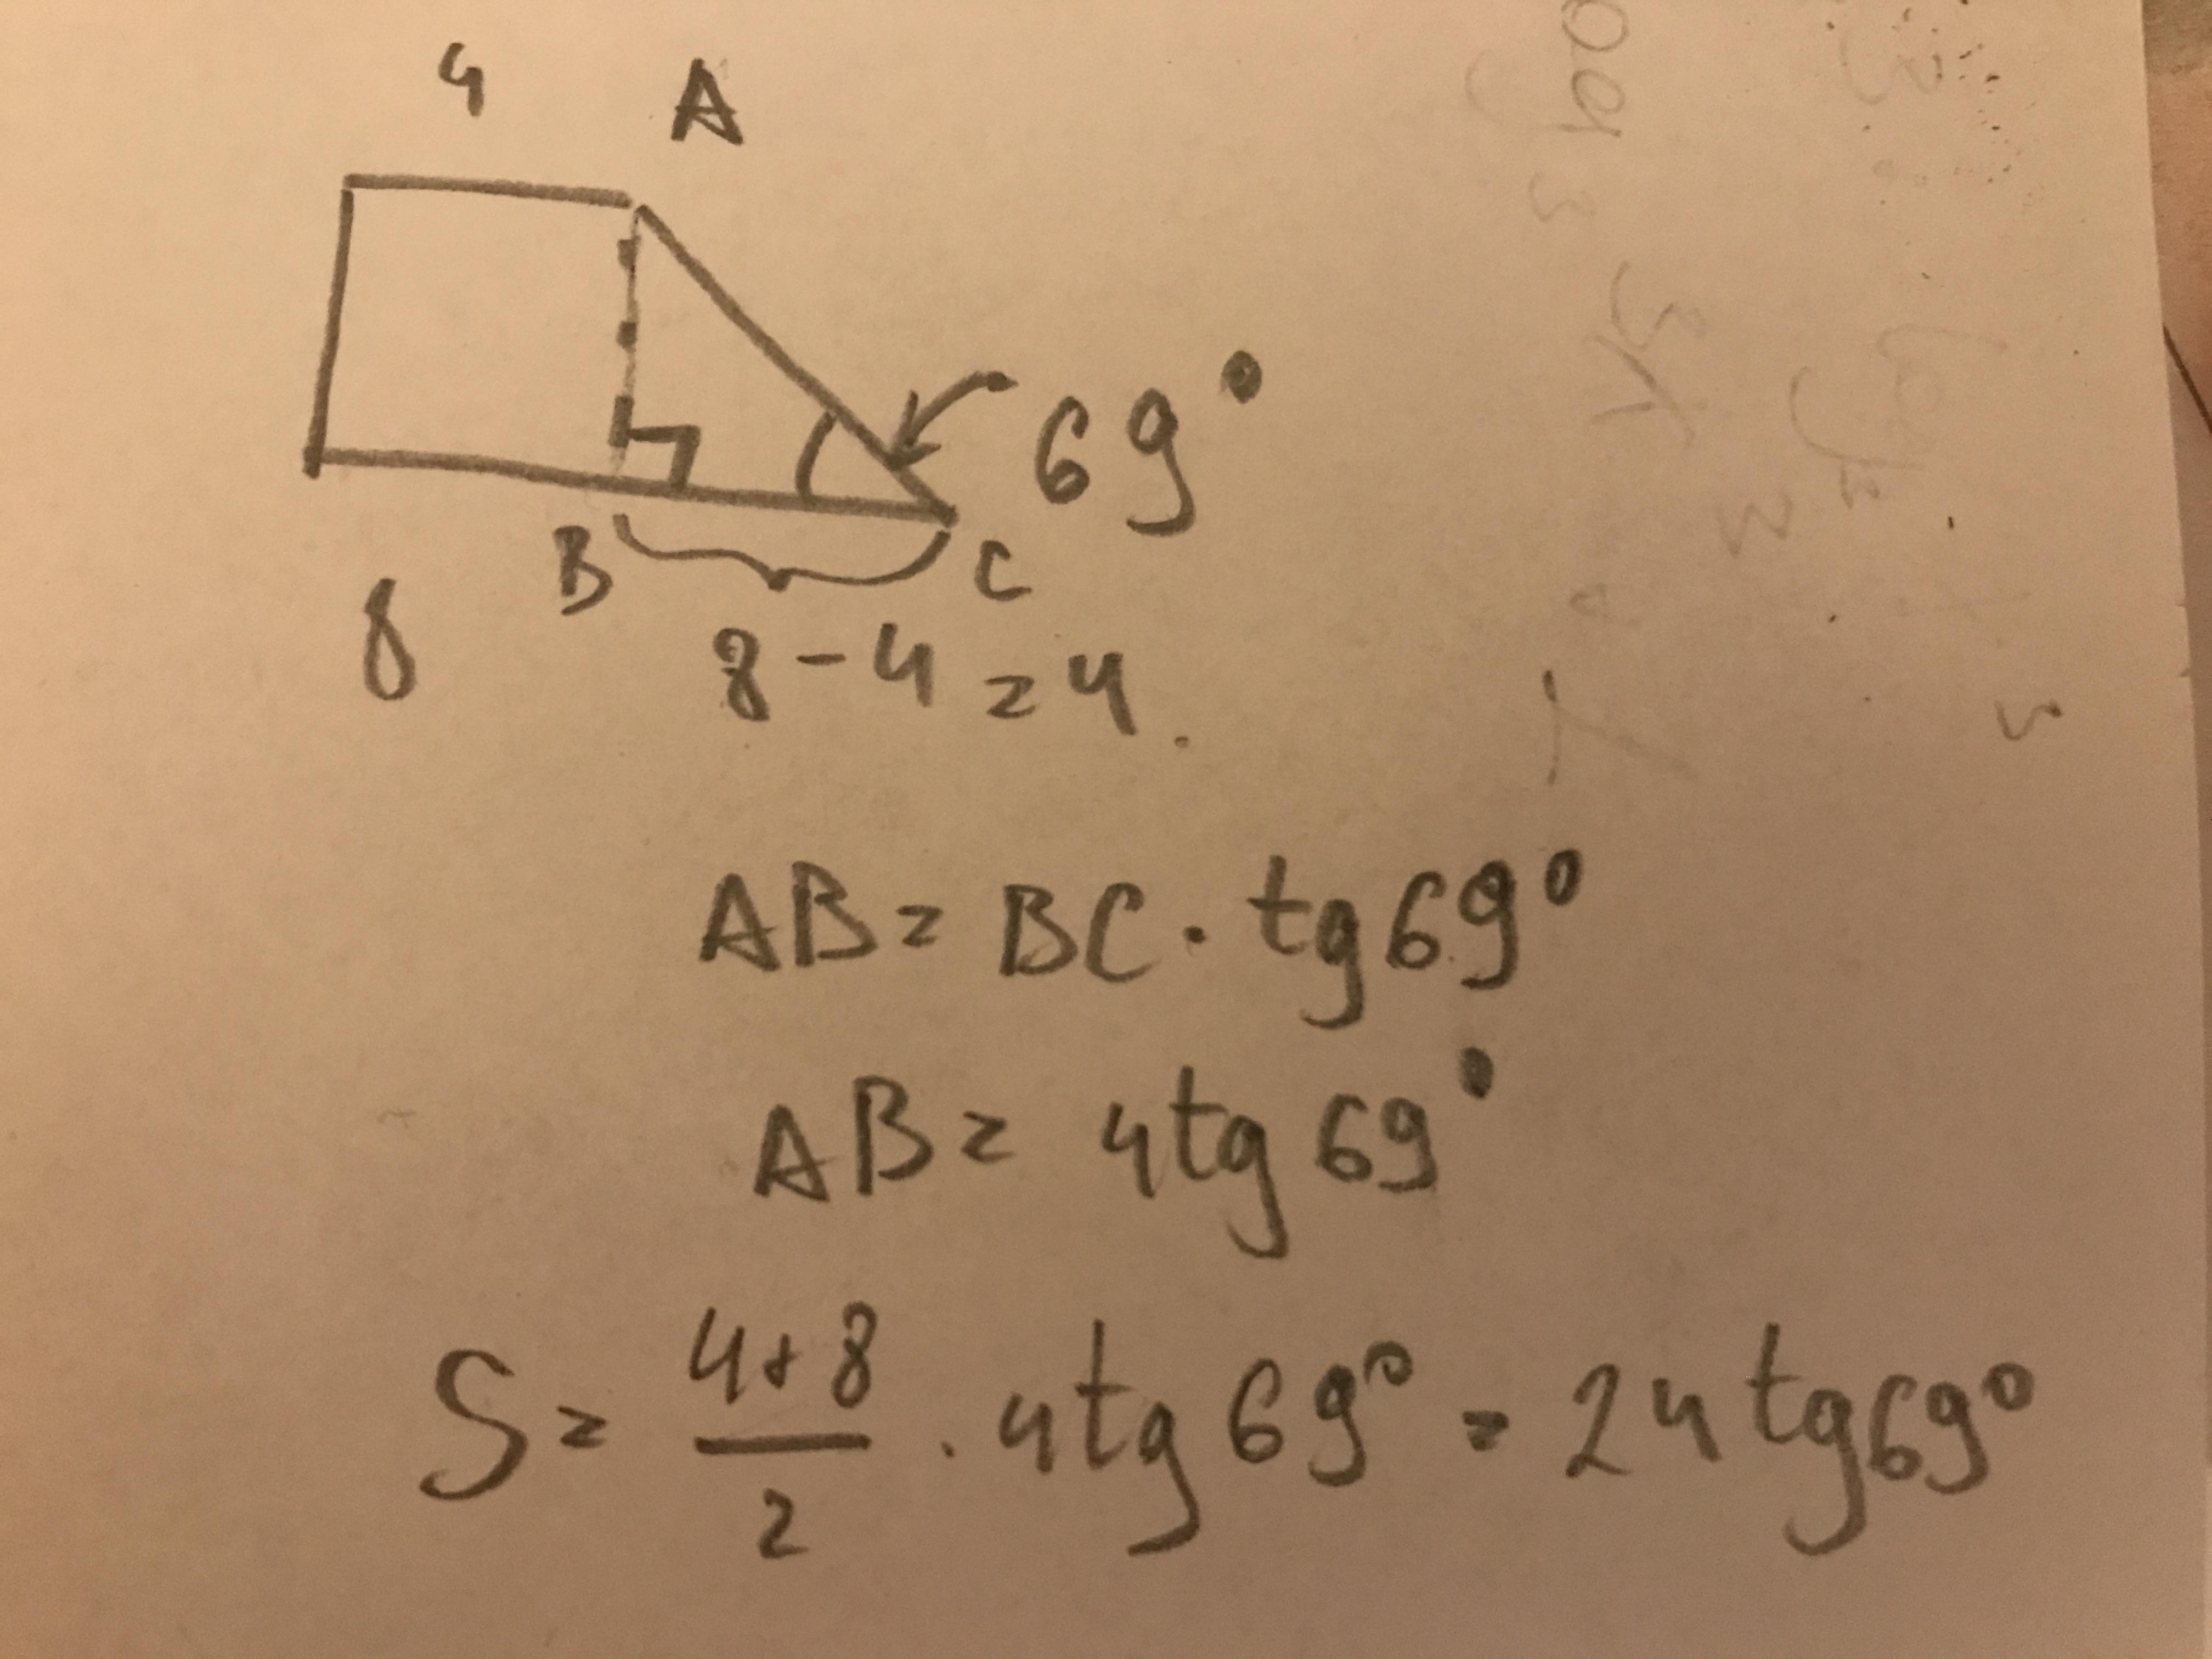 4 A
69°
B C
8
8 - 4 = 4.
AB = BC · tg 69°
AB = 4 tg 69°
S = (4+8)/2 · 4 tg 69° = 24 tg 69°